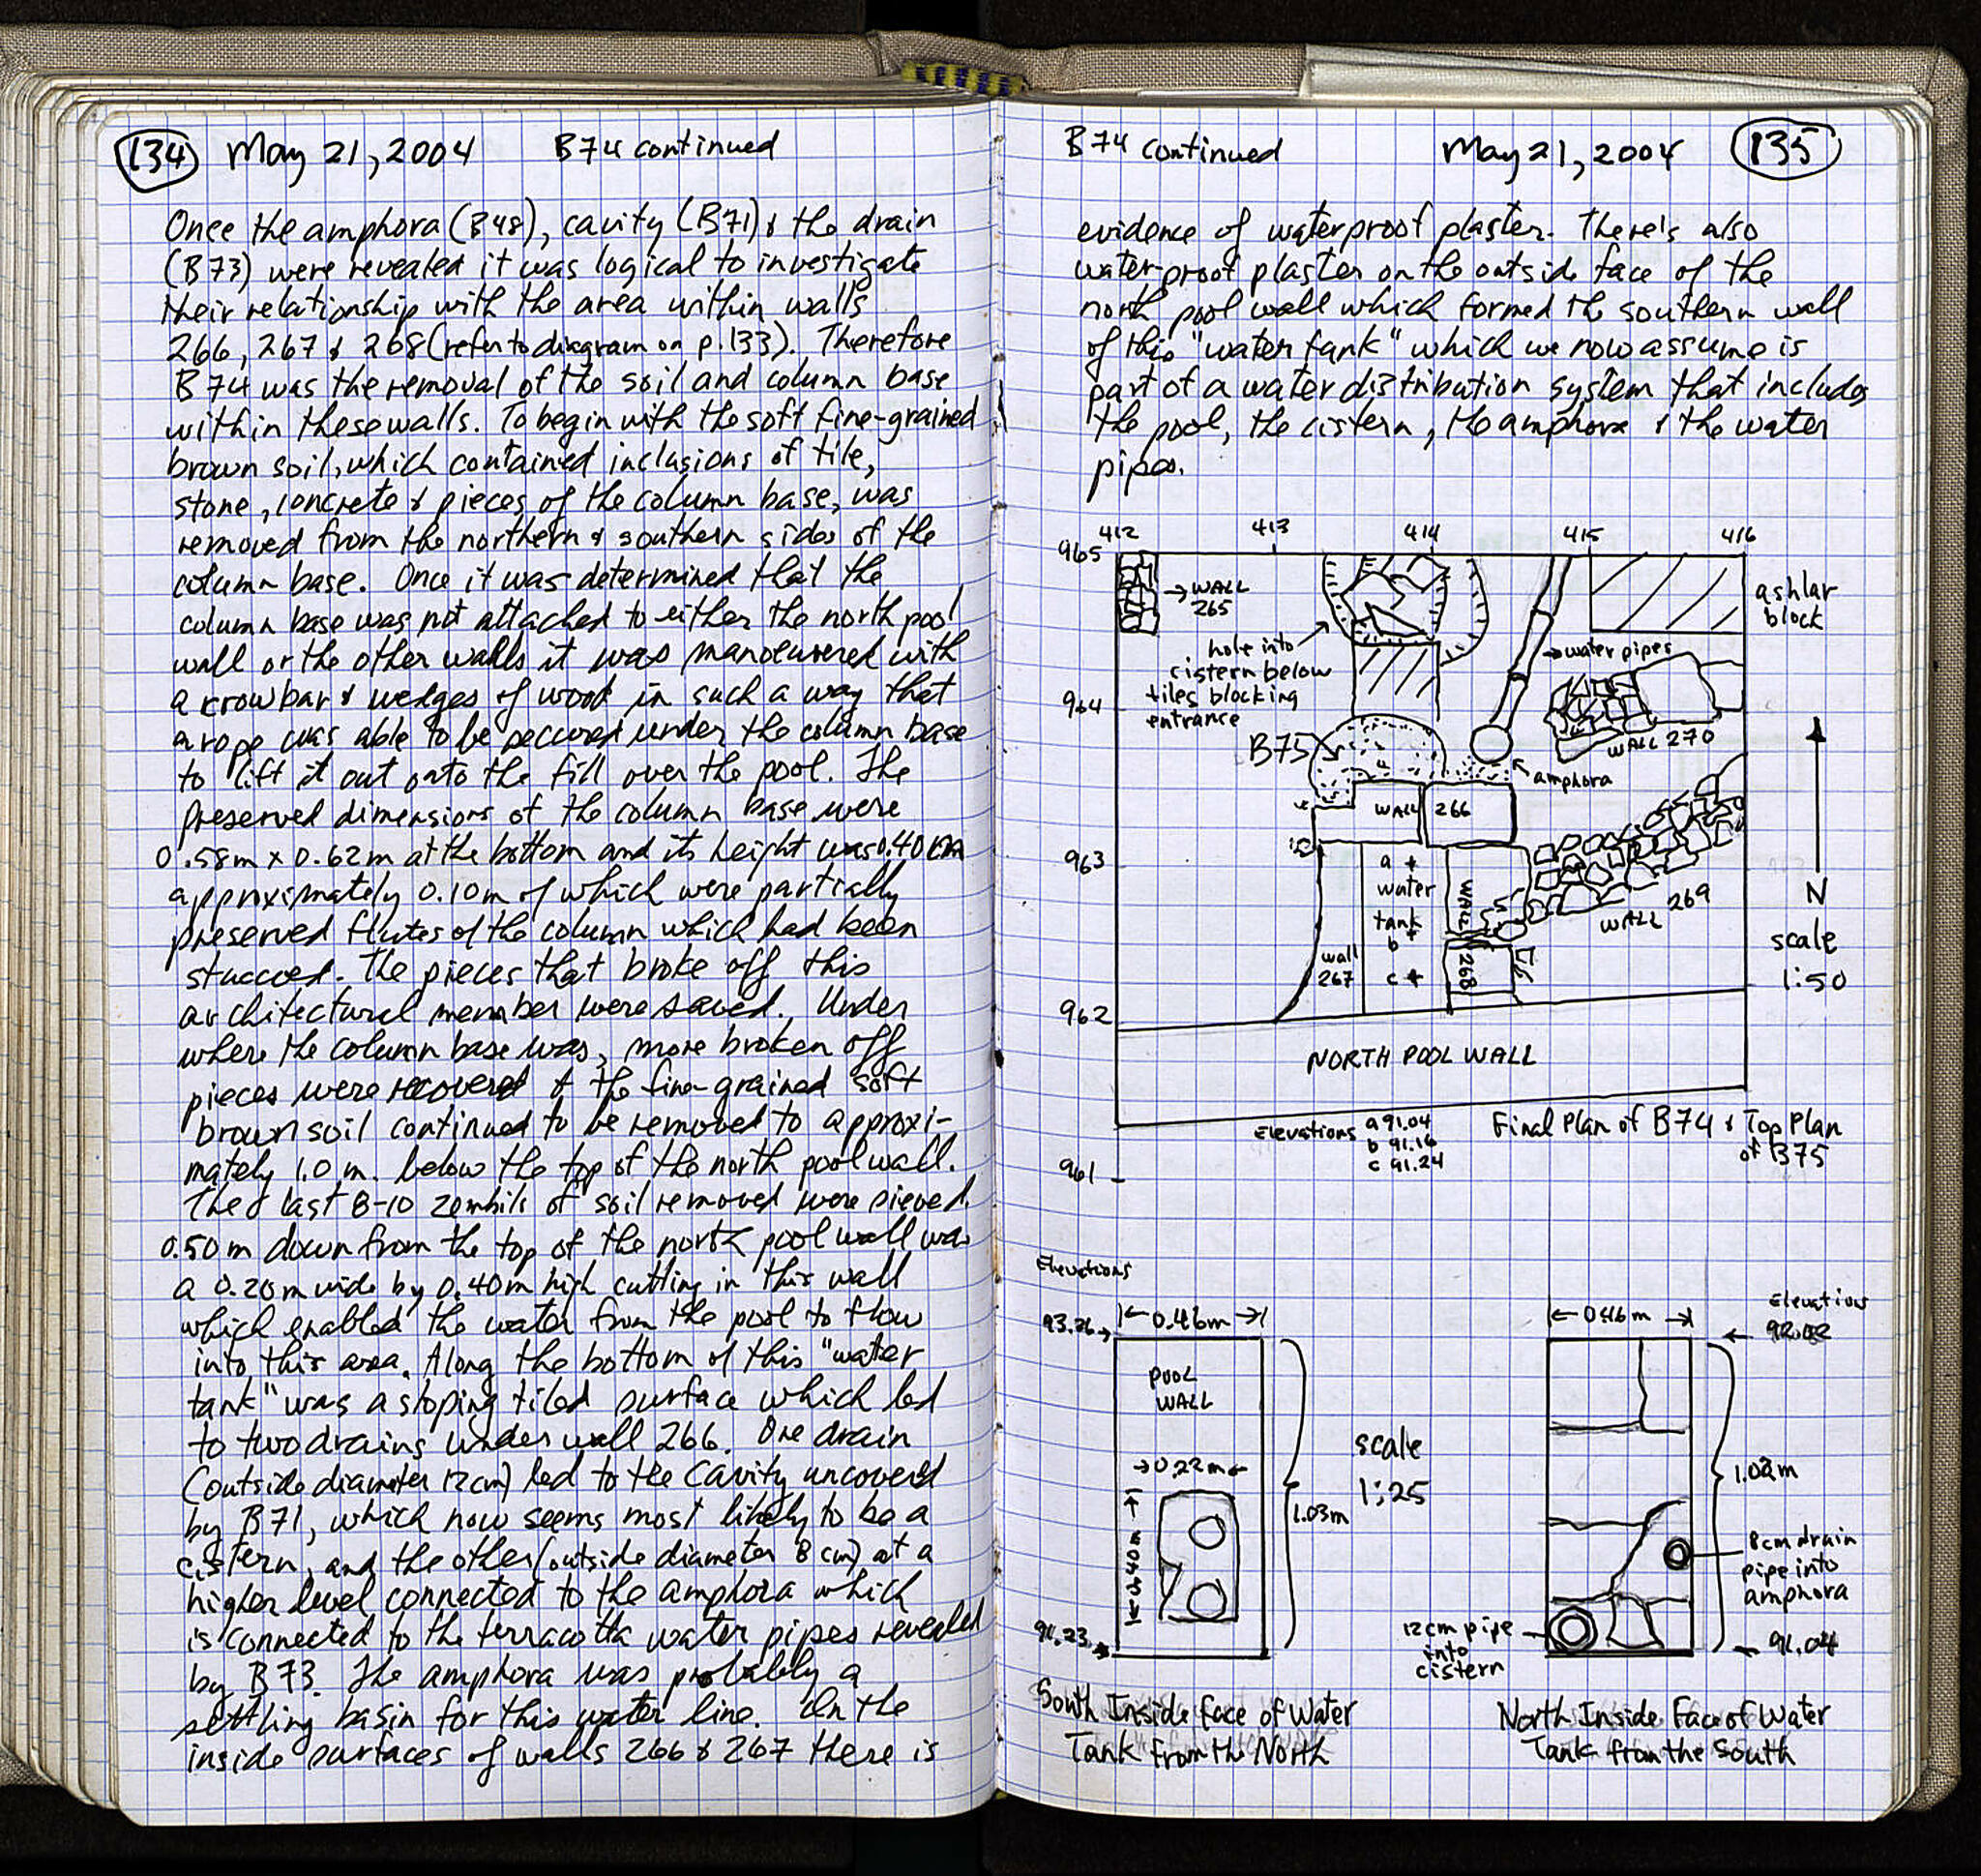 134 May 21, 2004 B74 continued
Once the amphora (B48), cavity (B71) & the drain
(B73) were revealed it was logical to investigate
their relationship with the area within walls
266, 267 & 268 (refer to diagram on p. 133). Therefore
B74 was the removal of the soil and column base
within these walls. To begin with the soft fine-grained
brown soil, which contained inclusions of tile,
stone, concrete & pieces of the column base, was
removed from the northern & southern sides of the
column base. Once it was determined that the
column base was not attached to either the north pool
wall or the other walls it was manoeuvered with
a crowbar & wedges of wood in such a way that
a rope was able to be secured under the column base
to lift it out onto the fill over the pool. The
preserved dimensions of the column base were
0.58m x 0.62m at the bottom and its height was 0.40m
approximately 0.10m of which were partially
preserved flutes of the column which had been
stuccoed. The pieces that broke off this
architectural member were saved. Under
where the column base was, more broken off
pieces were recovered & the fine-grained soft
brown soil continued to be removed to approxi-
mately 1.0 m. below the top of the north pool wall.
The last 8-10 zembils of soil removed were sieved.
0.50m down from the top of the north pool wall was
a 0.20m wide by 0.40m high cutting in this wall
which enabled the water from the pool to flow
into this area. Along the bottom of this "water
tank" was a sloping tiled surface which led
to two drains under wall 266. One drain
(outside diameter 12cm) led to the cavity uncovered
by B71, which now seems most likely to be a
cistern, and the other (outside diameter 8 cm) at a
higher level connected to the amphora which
is connected to the terracotta water pipes revealed
by B73. The amphora was probably a
settling basin for this water line. On the
inside surfaces of walls 266 & 267 there is
B74 continued May 21, 2004 135
evidence of waterproof plaster. There's also
water-proof plaster on the outside face of the
north pool wall which formed the southern wall
of this "water tank" which we now assume is
part of a water distribution system that includes
the pool, the cistern, the amphora & the water
pipes.
412 413 414 415 416
965
→ WALL
265
ashlar
block
hole into
cistern below
tiles blocking
entrance
→ water pipes
964
WALL 270
B75
amphora
WALL 266
963
a +
water
tank
b +
c +
WALL
268
wall
267
WALL 269
N
scale
1:50
962
NORTH POOL WALL
Elevations a 91.04
b 91.16
c 91.24
Final Plan of B74 & Top Plan
of B75
961
Elevations
93.26
0.46m
POOL
WALL
0.22m
0.40m
1.03m
91.23
South Inside Face of Water
Tank from the North
scale
1:25
Elevations
0.46m
1.02m
8cm drain
pipe into
amphora
12cm pipe
into
cistern
91.04
North Inside Face of Water
Tank from the South